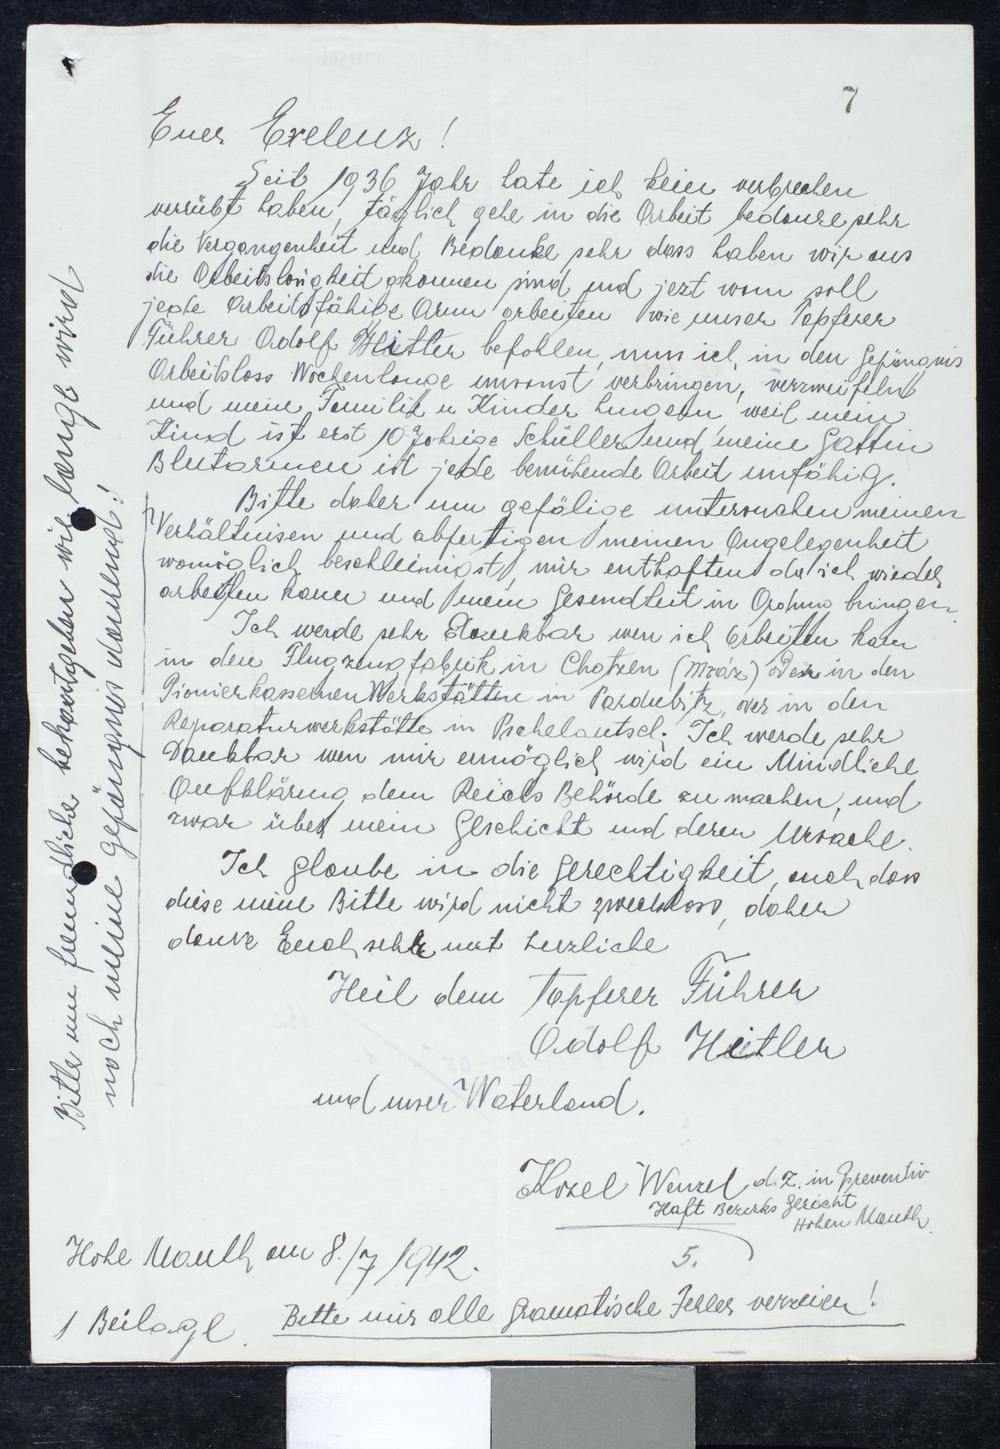 7
Euer Exelenz!
Seit 1936 Jahr hate ich kein verbrechen
verrübt haben, täglich gehe in die Arbeit bedaure sehr
die Vergangenheit und Bedanke sehr dass haben wir aus
die Arbeitslosigkeit gkomen sind und jezt wom soll
jede Arbeitsfähige Arm arbeiten wie unser Tapferer
Führer Adolf Hitler befohlen, mus ich in den Gefängnis
Arbeitsloss Wochenlange umsonst verbringen, verzweifeln
und meine Familie u Kinder hungern weil mein
Kind ist erst 10 Johrige Schüller und meine Gattin
Blutarmen ist jede bemühende Arbeit unfähig.
Bitte daher um gefälige untersuchen meinen
Verhältnisen und abfertigen meinen Angelegenheit
womöglich beschleinigst, mir enthaften da ich wieder
arbeiten kann und mein Gesendheit in Ordnung bringen.
Ich werde sehr Dankbar wen ich arbeiten kan
in den Flugzeugfabrik in Chotzen (Mráz) oder in den
Pionierkassernen Werkstätten in Pardubitz, oder in den
Reparaturwerkstätte in Pschelautsch. Ich werde sehr
Dankbar wen mir ermöglich wird ein Mindliche
Aufklärung dem Reichs Behörde zu machen, und
zwar über mein Geschicht und deren Ursache.
Ich glaube in die Gerechtigkeit, auch dass
diese meine Bitte wird nicht zweckloss, daher
danke Euch sehr mit herzliche
Heil dem Tapferer Führer
Adolf Hitler
und unser Waterland.
Kozel Wenzel d. Z. in Preventiv
Haft Bezirks Gericht
Hohen Mauth.
5.
Hohe Mauth am 8./7 1942.
1 Beilage. Bitte mir alle Gramatische Fehler verzeien!
Bitte um freundliche bekantgeben wie lange wird
noch meine gefängnis dauernd!